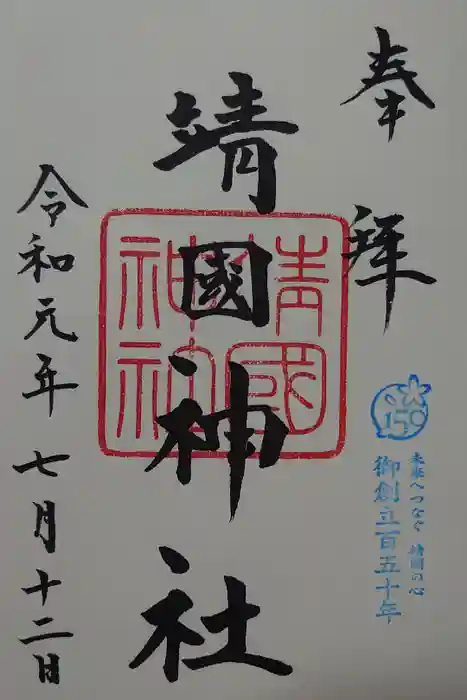 奉拜
150
未来へつなぐ 靖國の心
御創立百五十年
靖國神社
靖國
神社
令和元年七月十二日